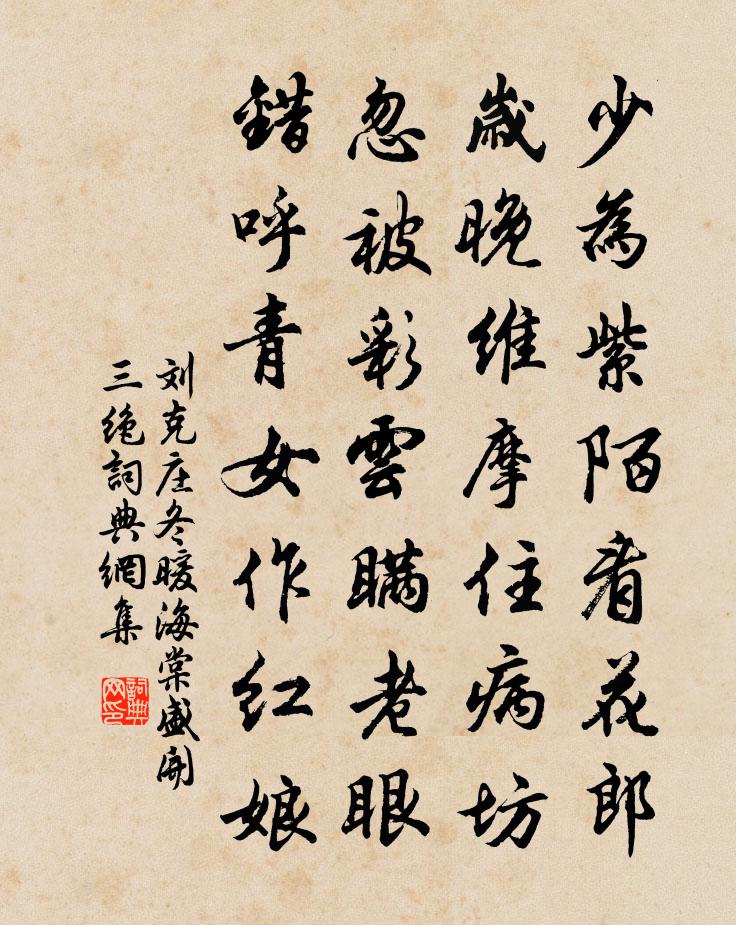 少為紫陌看花郎
歲晚維摩住病坊
忽被彩雲瞞老眼
錯呼青女作红娘
刘克庄冬暖海棠盛開
三绝詞典網集
詞典
网印